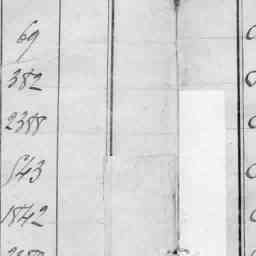 69
382
2388
543
1842